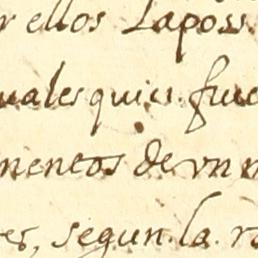 r ellos Laposs
uales quier fue
mentos de vn m
es, segun la ro